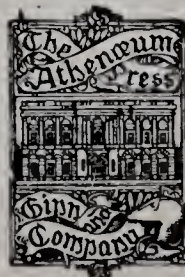 The
Athenæum
Press
Ginn and
Company